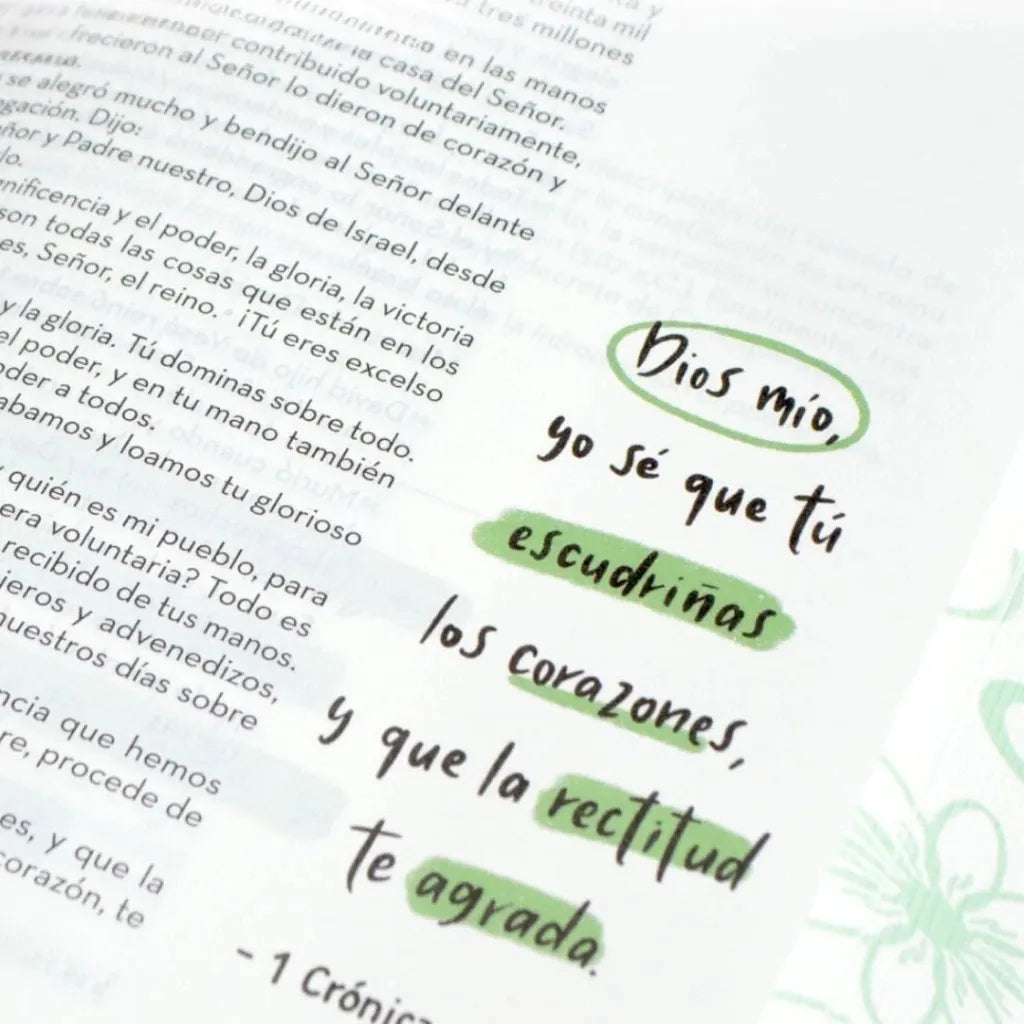 y tres millones
en las manos
la casa del Señor.
contribuido voluntariamente,
frecieron al Señor lo dieron de corazón y
se alegró mucho y bendijo al Señor delante
Dijo:
y Padre nuestro, Dios de Israel, desde
y el poder, la gloria, la victoria
son todas las cosas que están en los
es, Señor, el reino. ¡Tú eres excelso
y la gloria. Tú dominas sobre todo.
el poder, y en tu mano también
a todos.
abamos y loamos tu glorioso
quién es mi pueblo, para
era voluntaria? Todo es
recibido de tus manos.
jeros y advenedizos,
nuestros días sobre
ncia que hemos
re, procede de
es, y que la
corazón, te
Dios mío,
yo sé que tú
escudriñas
los corazones,
y que la rectitud
te agrada.
- 1 Crónic